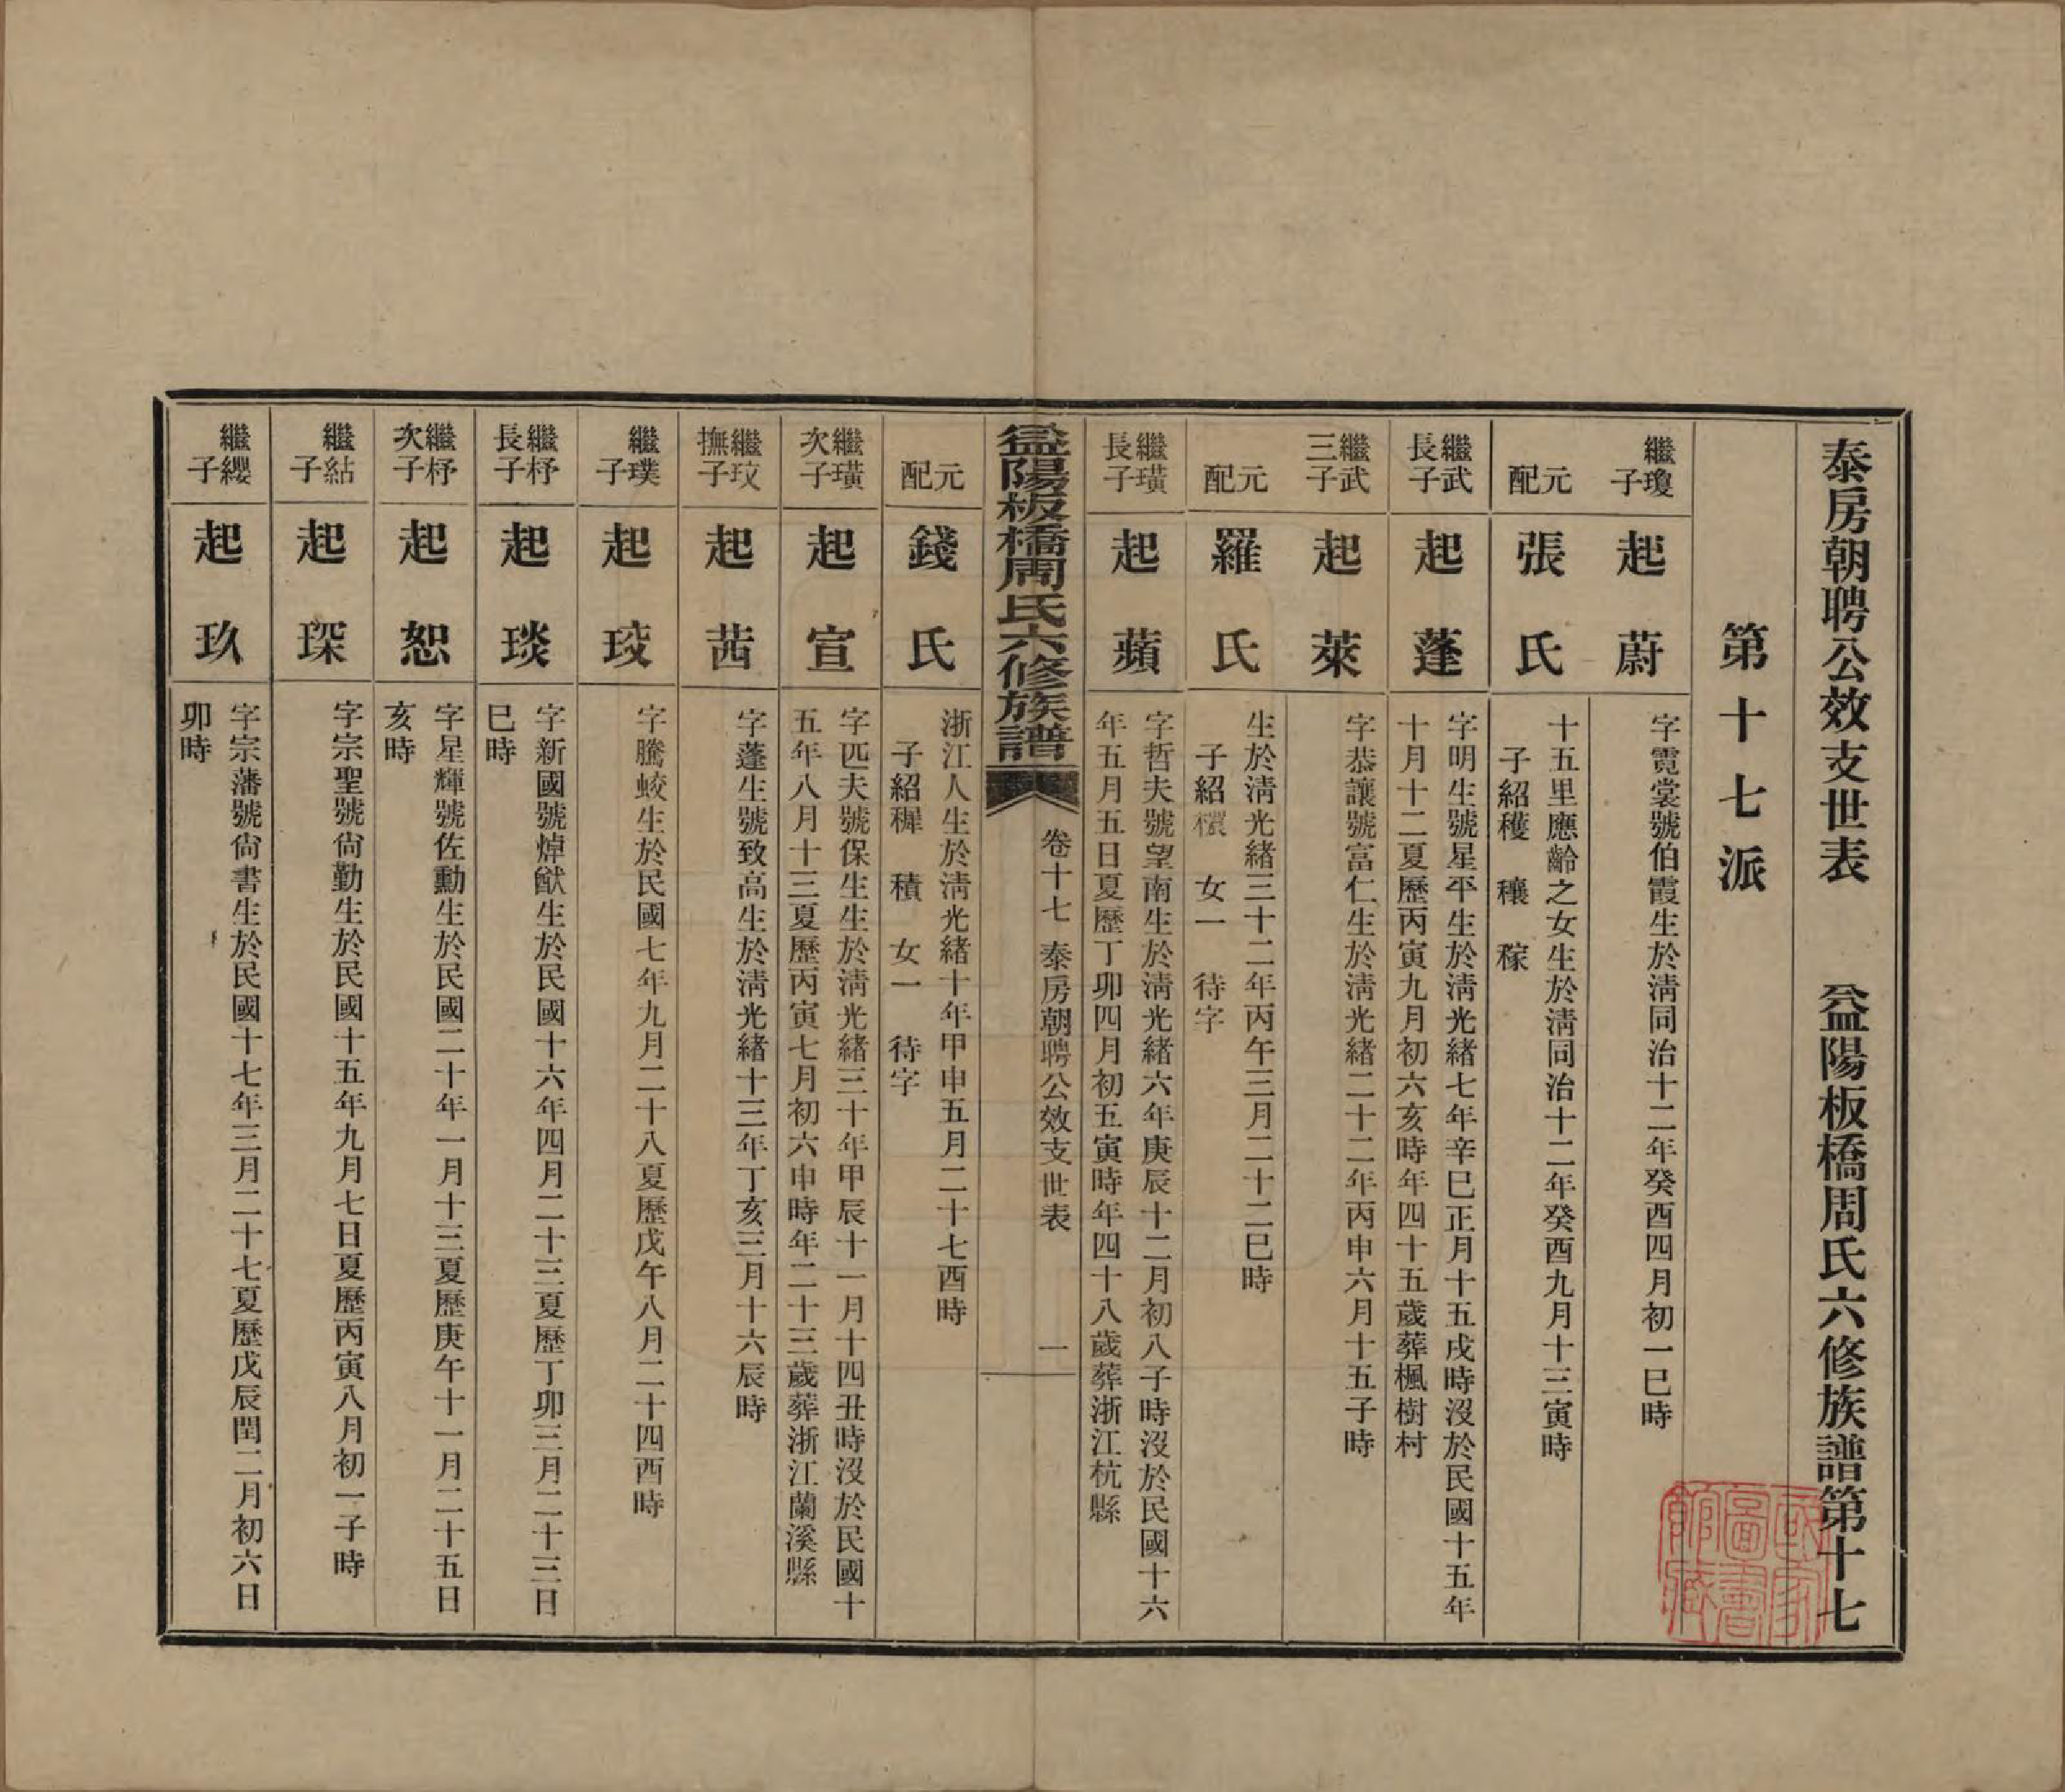 泰房朝聘公效支世表　益陽板橋周氏六修族譜第十七
第十七派
繼瓊子
起蔚
字霓裳號伯霞生於淸同治十二年癸酉四月初一巳時
元配
張氏
十五里應齡之女生於淸同治十二年癸酉九月十三寅時
子紹穫　穰　稼
繼武長子
起蓬
字明生號星平生於淸光緒七年辛巳正月十五戌時沒於民國十五年
十月十二夏歷丙寅九月初六亥時年四十五歲葬楓樹村
繼武三子
起萊
字恭讓號富仁生於淸光緒二十二年丙申六月十五子時
元配
羅氏
生於淸光緒三十二年丙午三月二十二巳時
子紹　女一　待字
繼璜長子
起蘋
字哲夫號望南生於淸光緒六年庚辰十二月初八子時沒於民國十六
年五月五日夏歷丁卯四月初五寅時年四十八歲葬浙江杭縣
益陽板橋周氏六修族譜
卷十七　泰房朝聘公效支世表　一
元配
錢氏
浙江人生於淸光緒十年甲申五月二十七酉時
子紹穉　積　女一　待字
繼璜次子
起宣
字匹夫號保生生於淸光緒三十年甲辰十一月十四丑時沒於民國十
五年八月十三夏歷丙寅七月初六申時年二十三歲葬浙江蘭溪縣
繼玟撫子
起茜
字蓬生號致高生於淸光緒十三年丁亥三月十六辰時
繼璞子
起珓
字騰蛟生於民國七年九月二十八夏歷戊午八月二十四酉時
繼杼長子
起琰
字新國號焯猷生於民國十六年四月二十三夏歷丁卯三月二十三日
巳時
繼杼次子
起恕
字星輝號佐勳生於民國二十年一月十三夏歷庚午十一月二十五日
亥時
繼䋎子
起琛
字宗聖號尙勤生於民國十五年九月七日夏歷丙寅八月初一子時
繼纓子
起玖
字宗藩號尙書生於民國十七年三月二十七夏歷戊辰閏二月初六日
卯時